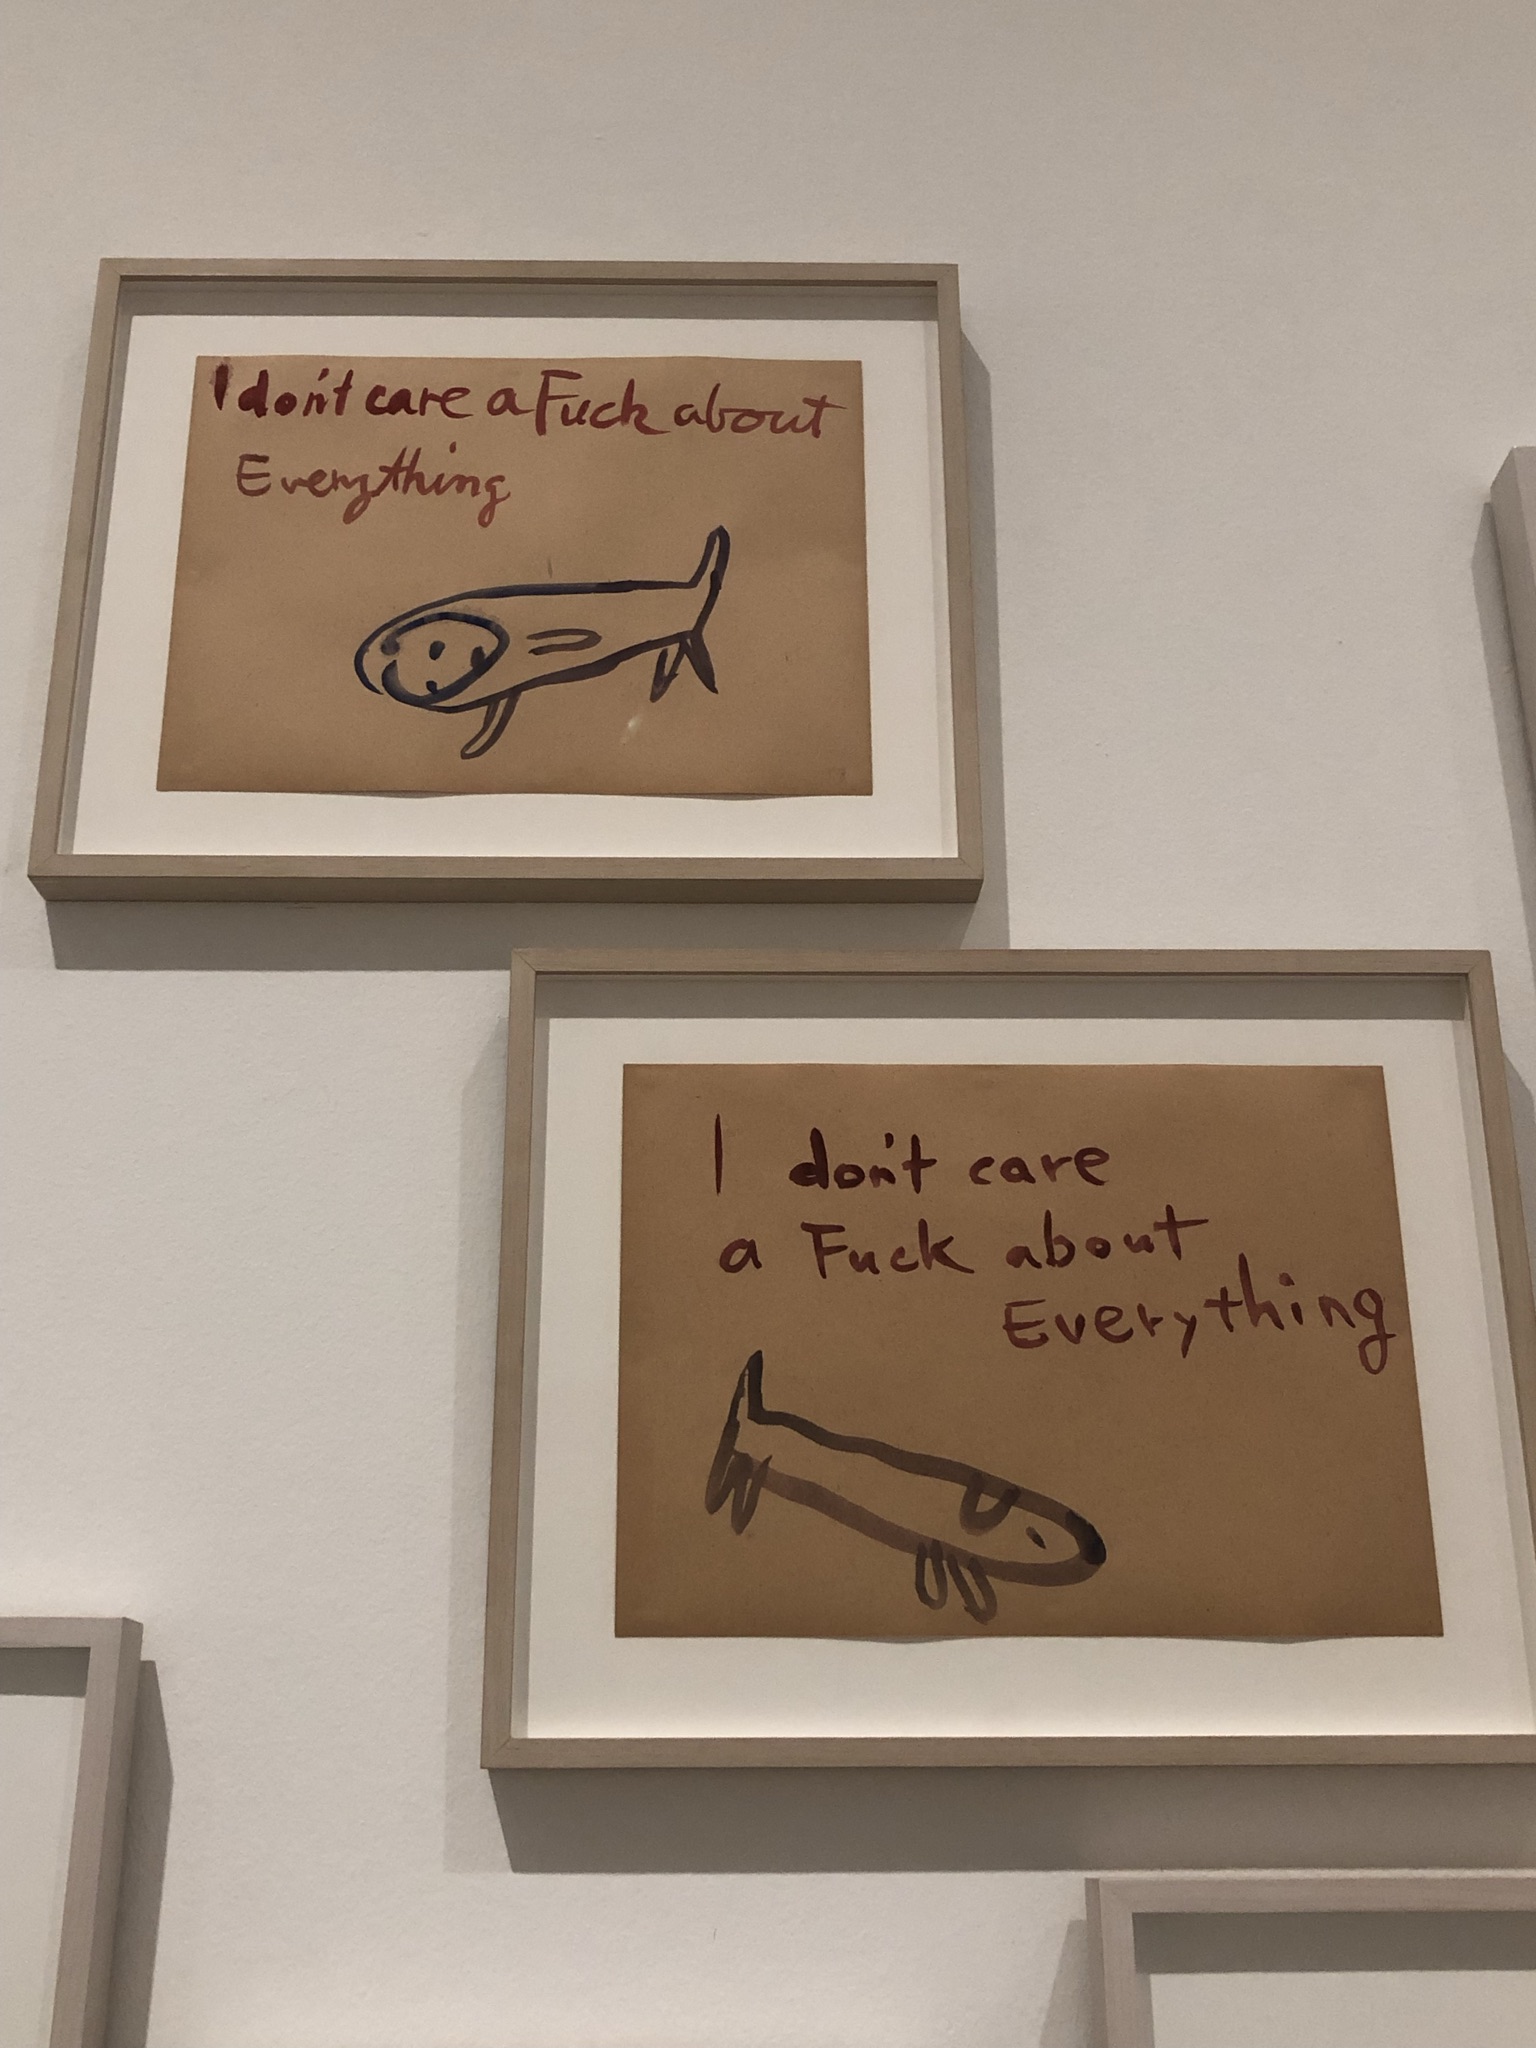 I don't care a Fuck about
Everything
I don't care
a Fuck about
Everything